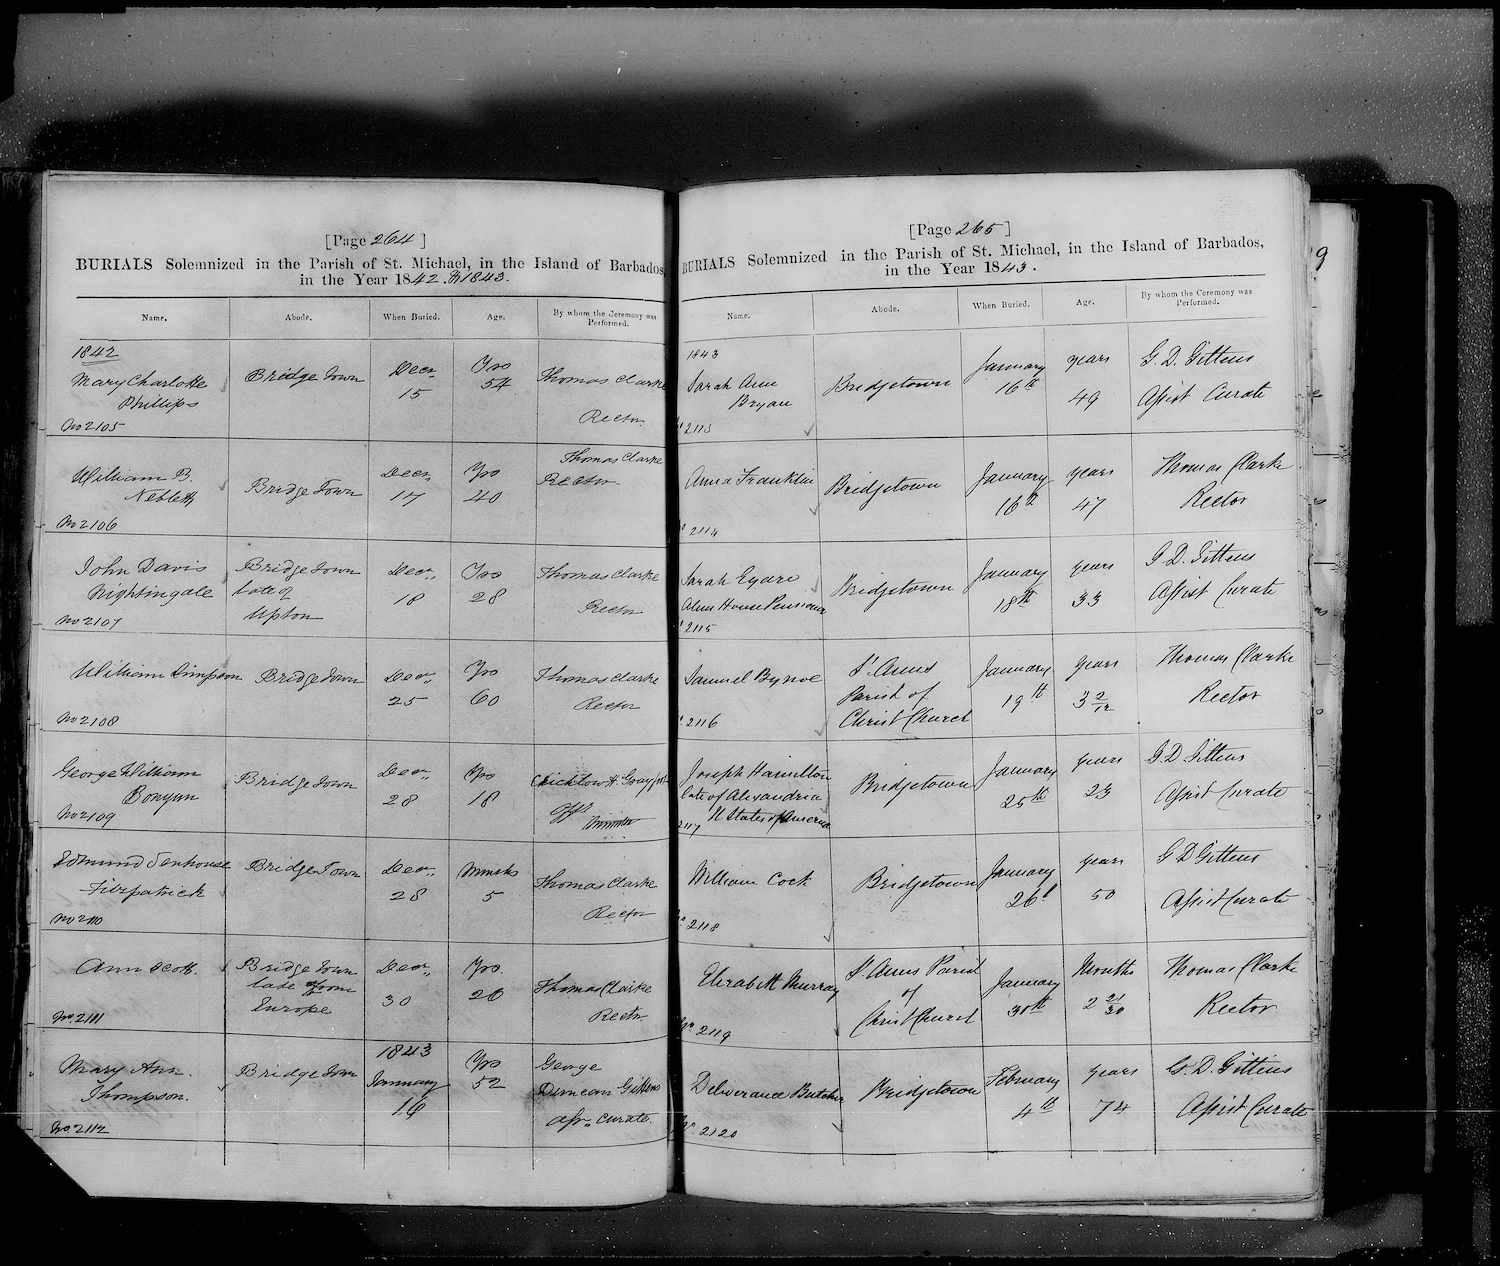 [Page 264]
BURIALS Solemnized in the Parish of St. Michael, in the Island of Barbados,
in the Year 1842 & 1843.
Name. Abode. When Buried. Age. By whom the Ceremony was Performed.
1842
Mary Charlotte
Phillips
No 2105
Bridge Town
Decr
15
Yrs
54
Thomas Clarke
Rector
William B.
Neblett
No 2106
Bridge Town
Decr
17
Yrs
40
Thomas Clarke
Rector
John Davis
Nightingale
No 2107
Bridge Town
late of
Upton
Decr
18
Yrs
28
Thomas Clarke
Rector
William Simpson
No 2108
Bridge Town
Decr
25
Yrs
60
Thomas Clarke
Rector
George William
Bonyun
No 2109
Bridge Town
Decr
28
Yrs
18
Minister
Edmund Senhouse
Fitzpatrick
No 2110
Bridge Town
Decr
28
Months
5
Thomas Clarke
Rector
Ann Scott.
No. 2111
Bridge Town
late from
Europe
Decr
30
Yrs.
20
Thomas Clarke
Rector
Mary Ann.
Thompson.
No. 2112
Bridge Town
1843
January
16
Yrs
52
George
Duncan Gittens
ass. curate.
[Page 265]
BURIALS Solemnized in the Parish of St. Michael, in the Island of Barbados,
in the Year 1843.
Name. Abode. When Buried. Age. By whom the Ceremony was Performed.
1843
Sarah Ann
Bryan
2113
Bridgetown
January
16th
years
49
G. D. Gittens
Assist Curate
Anna Franklin
2114
Bridgetown
January
16th
years
47
Thomas Clarke
Rector
Sarah
Alms House Pensioner
2115
Bridgetown
January
18th
years
33
G. D. Gittens
Assist Curate
Samuel Bynoe
2116
St Anns
Parish of
Christ Church
January
19th
years
3 2/12
Thomas Clarke
Rector
Joseph Hamilton
late of Alexandria
U States of America
2117
Bridgetown
January
25th
years
23
G. D. Gittens
Assist Curate
William Cock
2118
Bridgetown
January
26th
years
50
G D Gittens
Assist Curate
Elizabeth Murray
No 2119
St Anns Parish
of
Christ Church
January
30th
Months
2 21/30
Thomas Clarke
Rector
Deliverance Butcher
No 2120
Bridgetown
February
4th
years
74
G. D. Gittens
Assist Curate